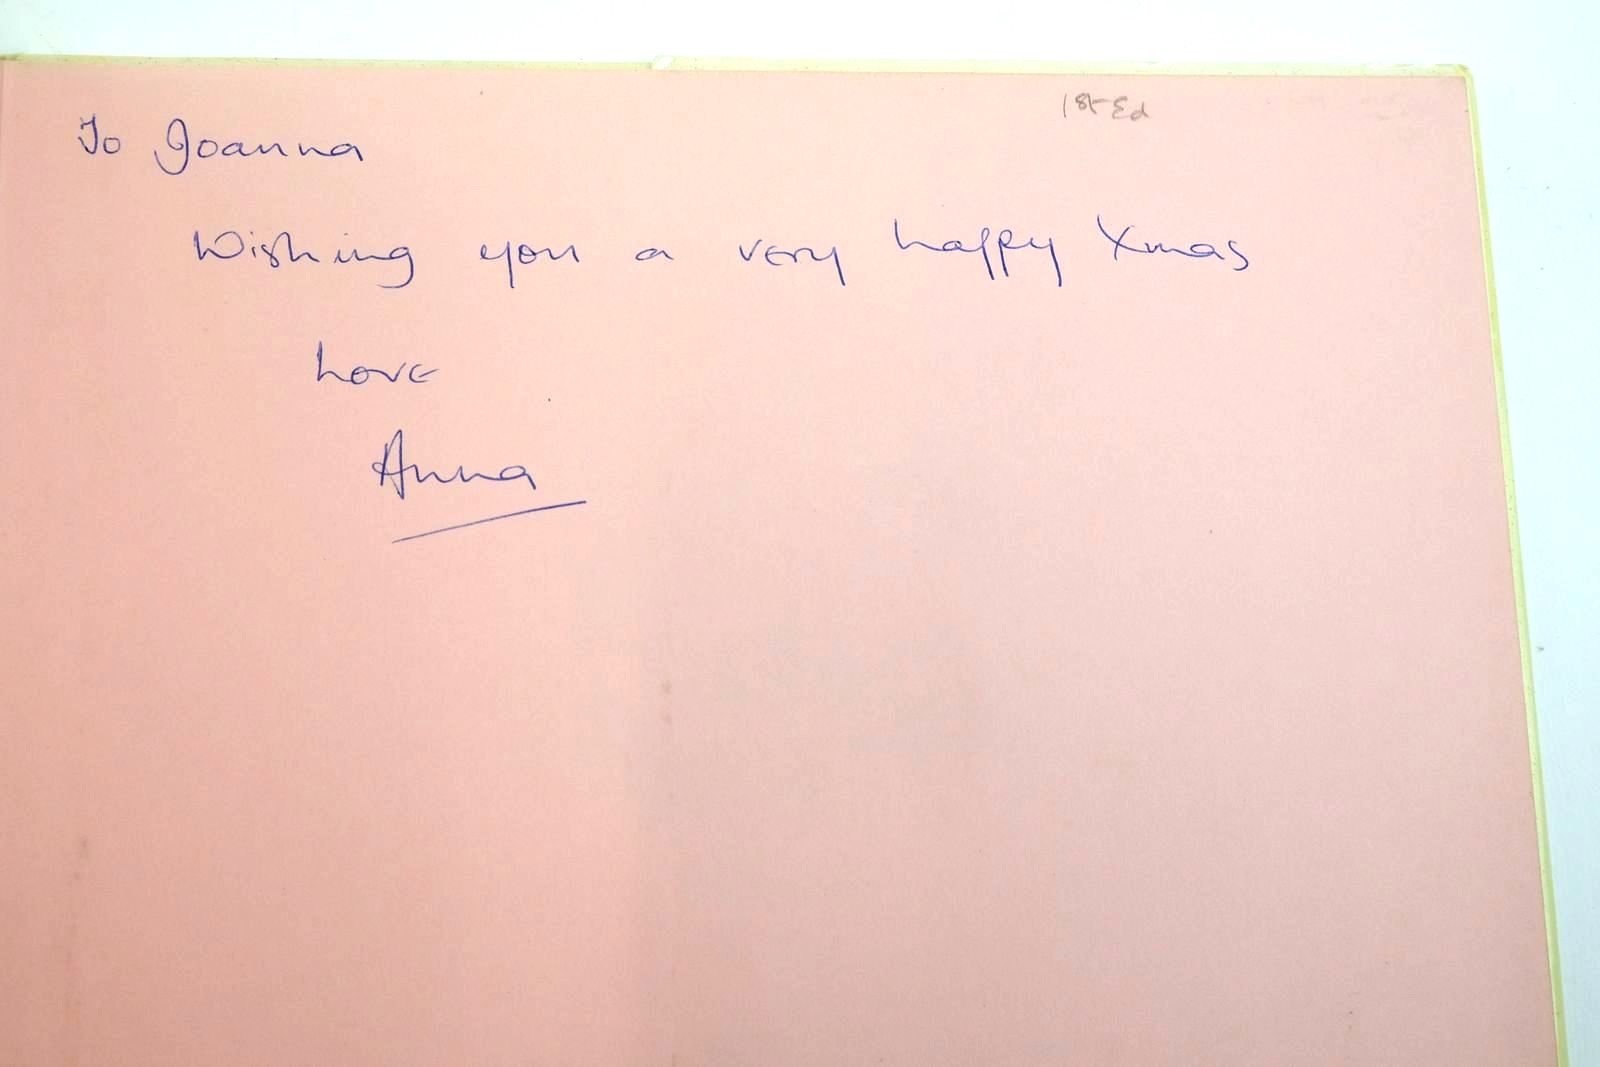 1st Ed
To Joanna
Wishing you a very happy Xmas
Love
Anna